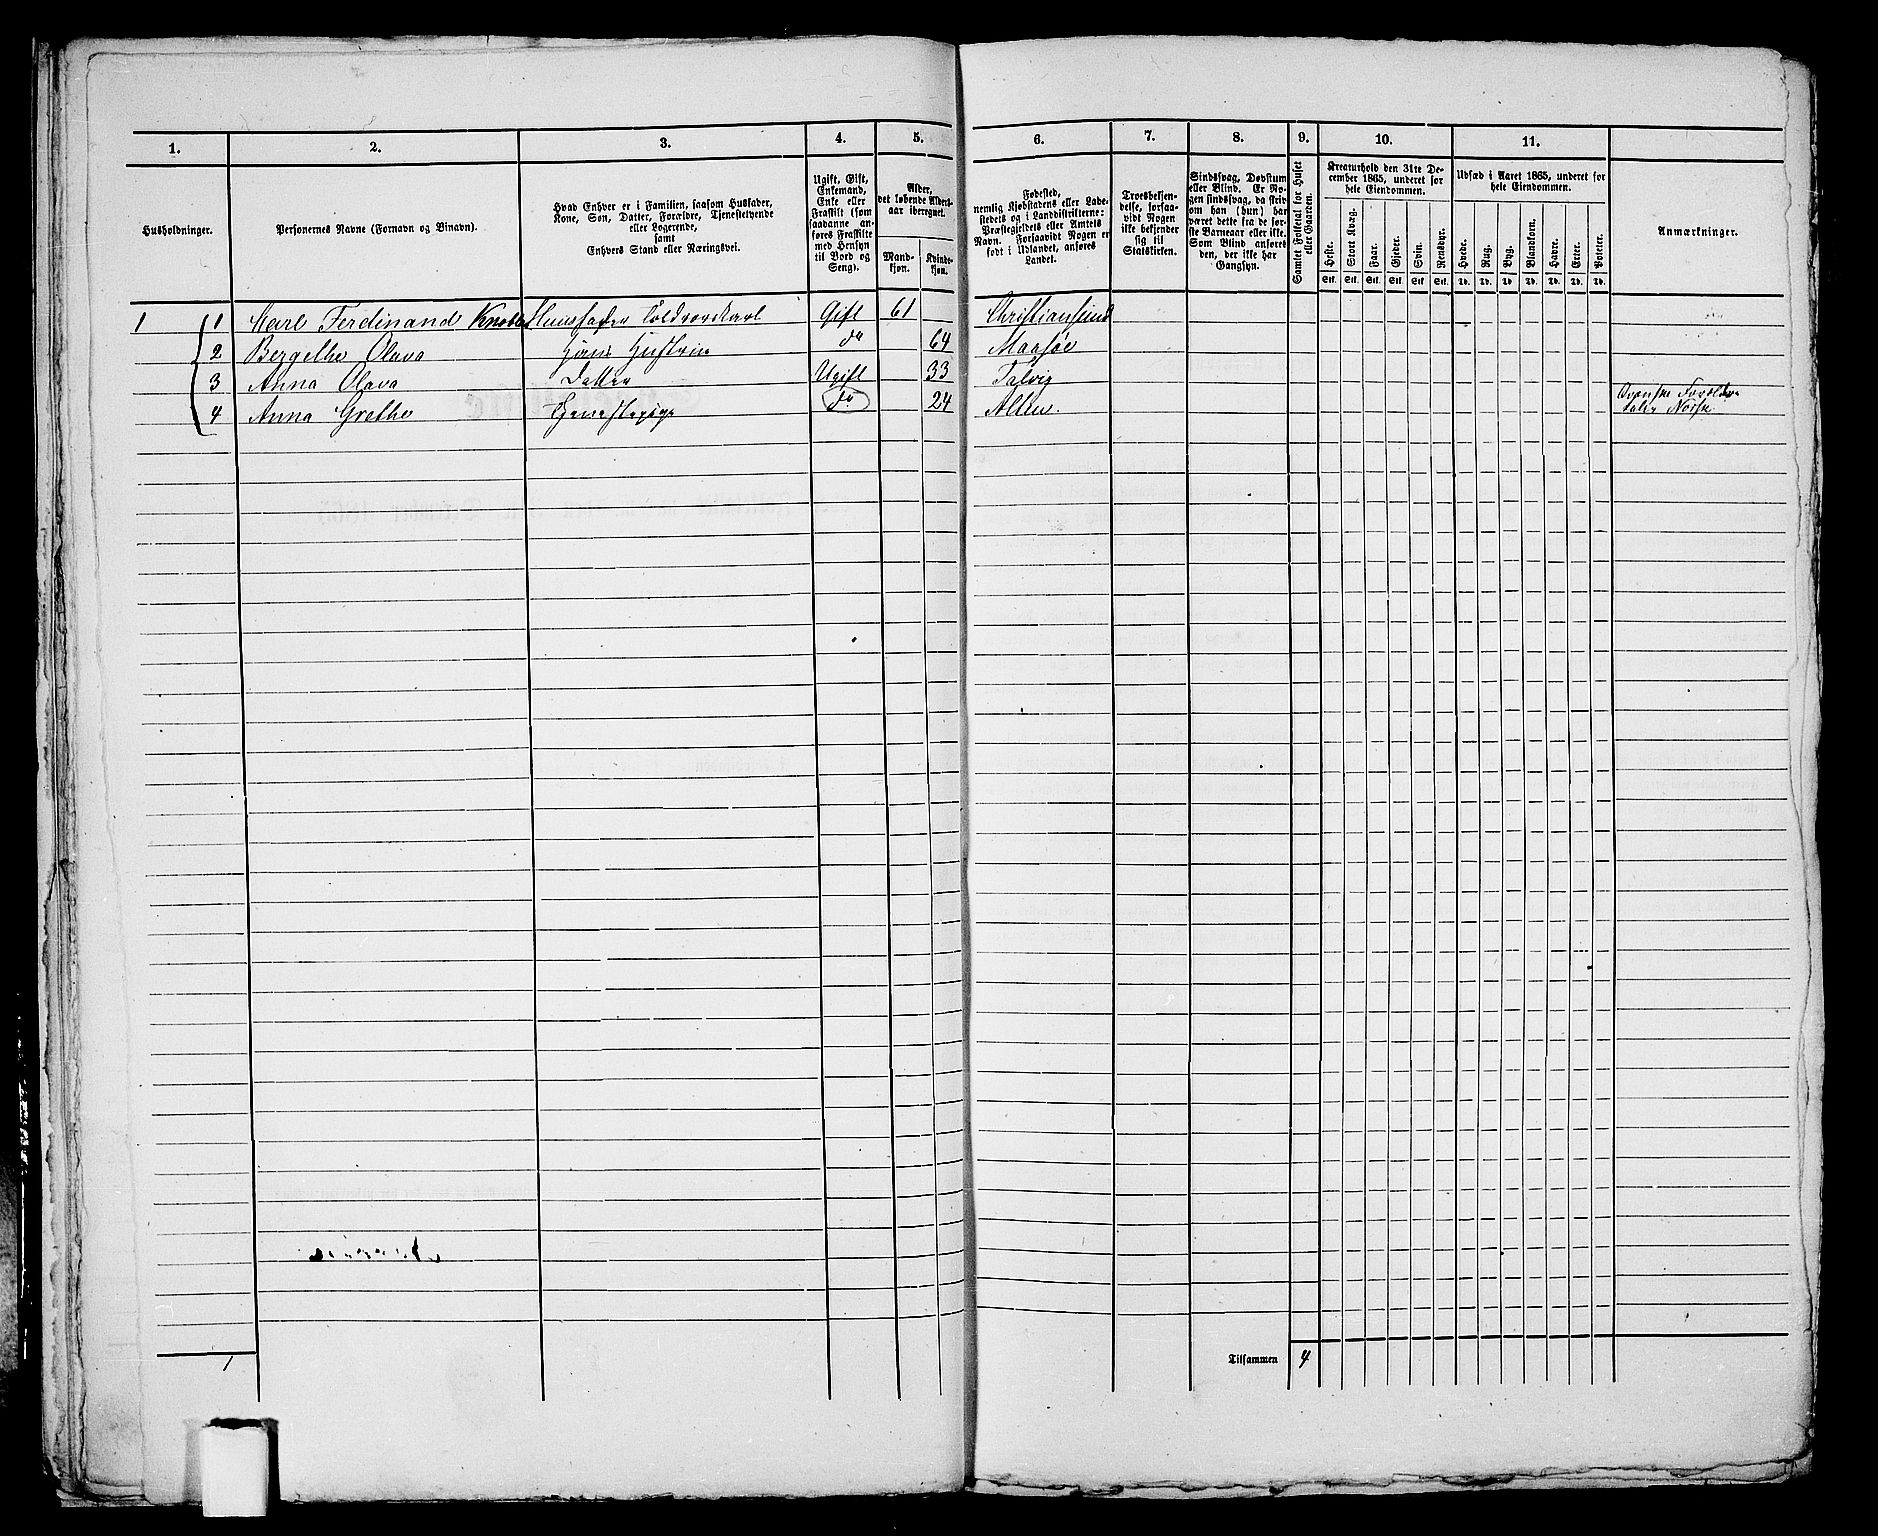 1. 2. 3. 4. 5. 6. 7. 8. 9. 10. 11.
Husholdninger.
Personernes Navne (Fornavn og Binavn).
Hvad Enhver er i Familien, saasom Husfader,
Kone, Søn, Datter, Forældre, Tjenestetyende
eller Logerende,
samt
Enhvers Stand eller Næringsvei.
Ugift, Gift,
Enkemand,
Enke eller
Fraskilt (som
saadanne an-
føres Fraskilte
med Hensyn
til Bord og
Seng).
Alder,
det løbende Alders-
aar iberegnet.
Mand-
kjøn.
Kvinde-
kjøn.
Fødested,
nemlig Kjøbstadens eller Lade-
stedets og i Landdistrikterne:
Præstegjeldets eller Amtets
Navn. Forsaavidt Nogen er
født i Udlandet, anføres
Landet.
Troesbekjen-
delse, forsaa-
vidt Nogen
ikke bekjender
sig til
Statskirken.
Sindssvag, Døvstum
eller Blind. Er No-
gen sindssvag, da skriv
om han (hun) har
været dette fra de før-
ste Barneaar eller ikke.
Som Blind anføres
den, der ikke har
Gangsyn.
Samlet Folketal for Huset
eller Gaarden.
Kreaturhold den 31te De-
cember 1865, underet for
hele Eiendommen.
Heste. Stort Kvæg. Faar. Gjeder. Svin. Rensdyr.
Stk. Stk. Stk. Stk. Stk. Stk.
Udsæd i Aaret 1865, underet for
hele Eiendommen.
Hvede. Rug. Byg. Blandkorn. Havre. Erter. Poteter.
Td. Td. Td. Td. Td. Td. Td.
Anmærkninger.
1 1 Karl Ferdinand Knoblau Huusfader Toldvorskarl Gift 61 Christiansund
2 Bergethe Olava Hans Hustrue do 64 Maasøe
3 Anna Olava Datter Ugift 33 Talvig
4 Anna Grethe Tjenestepige do 24 Alten. Svenske Forældre
taler Norsk
1
Tilsammen 4